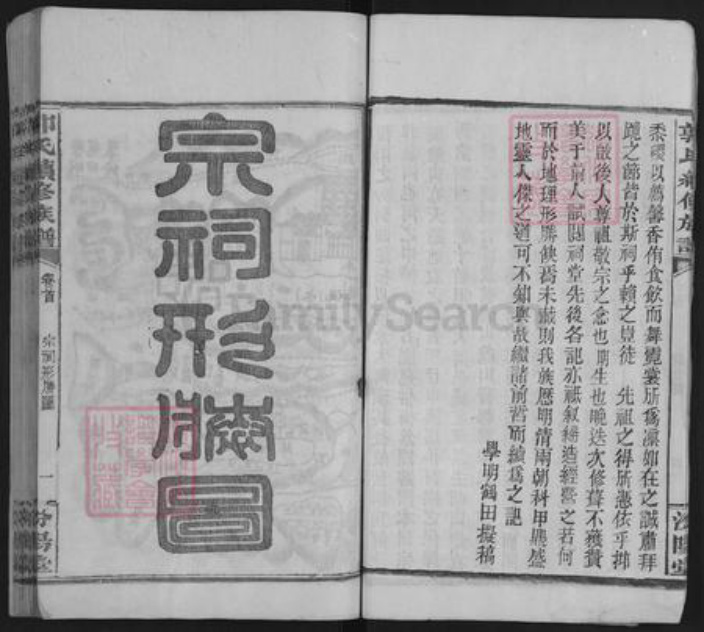 黍稷以為馨香侑食飲而舞霓裳所爲凛如在之誠肅拜
跪之節皆於斯祠乎賴之豈徒 先祖之得所憑依乎抑
以啟後人尊祖敬宗之念也明生也晚迭次修葺不獲贊
美于前人試閱祠堂先後各記亦祗叙締造經營之若何
而於地理形勝缺焉未載則我族歷明清兩朝科甲興盛
地靈人傑之道可不知與故繼諸前哲而續爲之記
學明鶴田擬稿
宗祠形勝圖
氏續修族譜
卷首
宗祠形勝圖
一
汾陽堂
FamilySearch